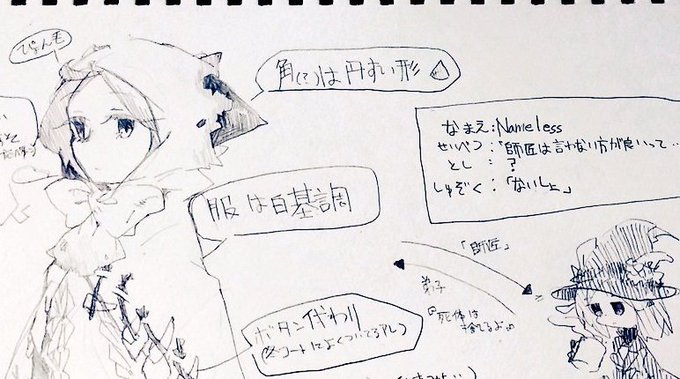 ぴょんも
角(?)は円すい形
なまえ:Nameless
せいべつ:「師匠は言わない方が良いって‥
とし:?
しゅぞく:「ないしょ」
服は白基調
「師匠」
弟子
「死体は
捨てるよ
ボタン代わり
(冬コートによくついてるアレ)